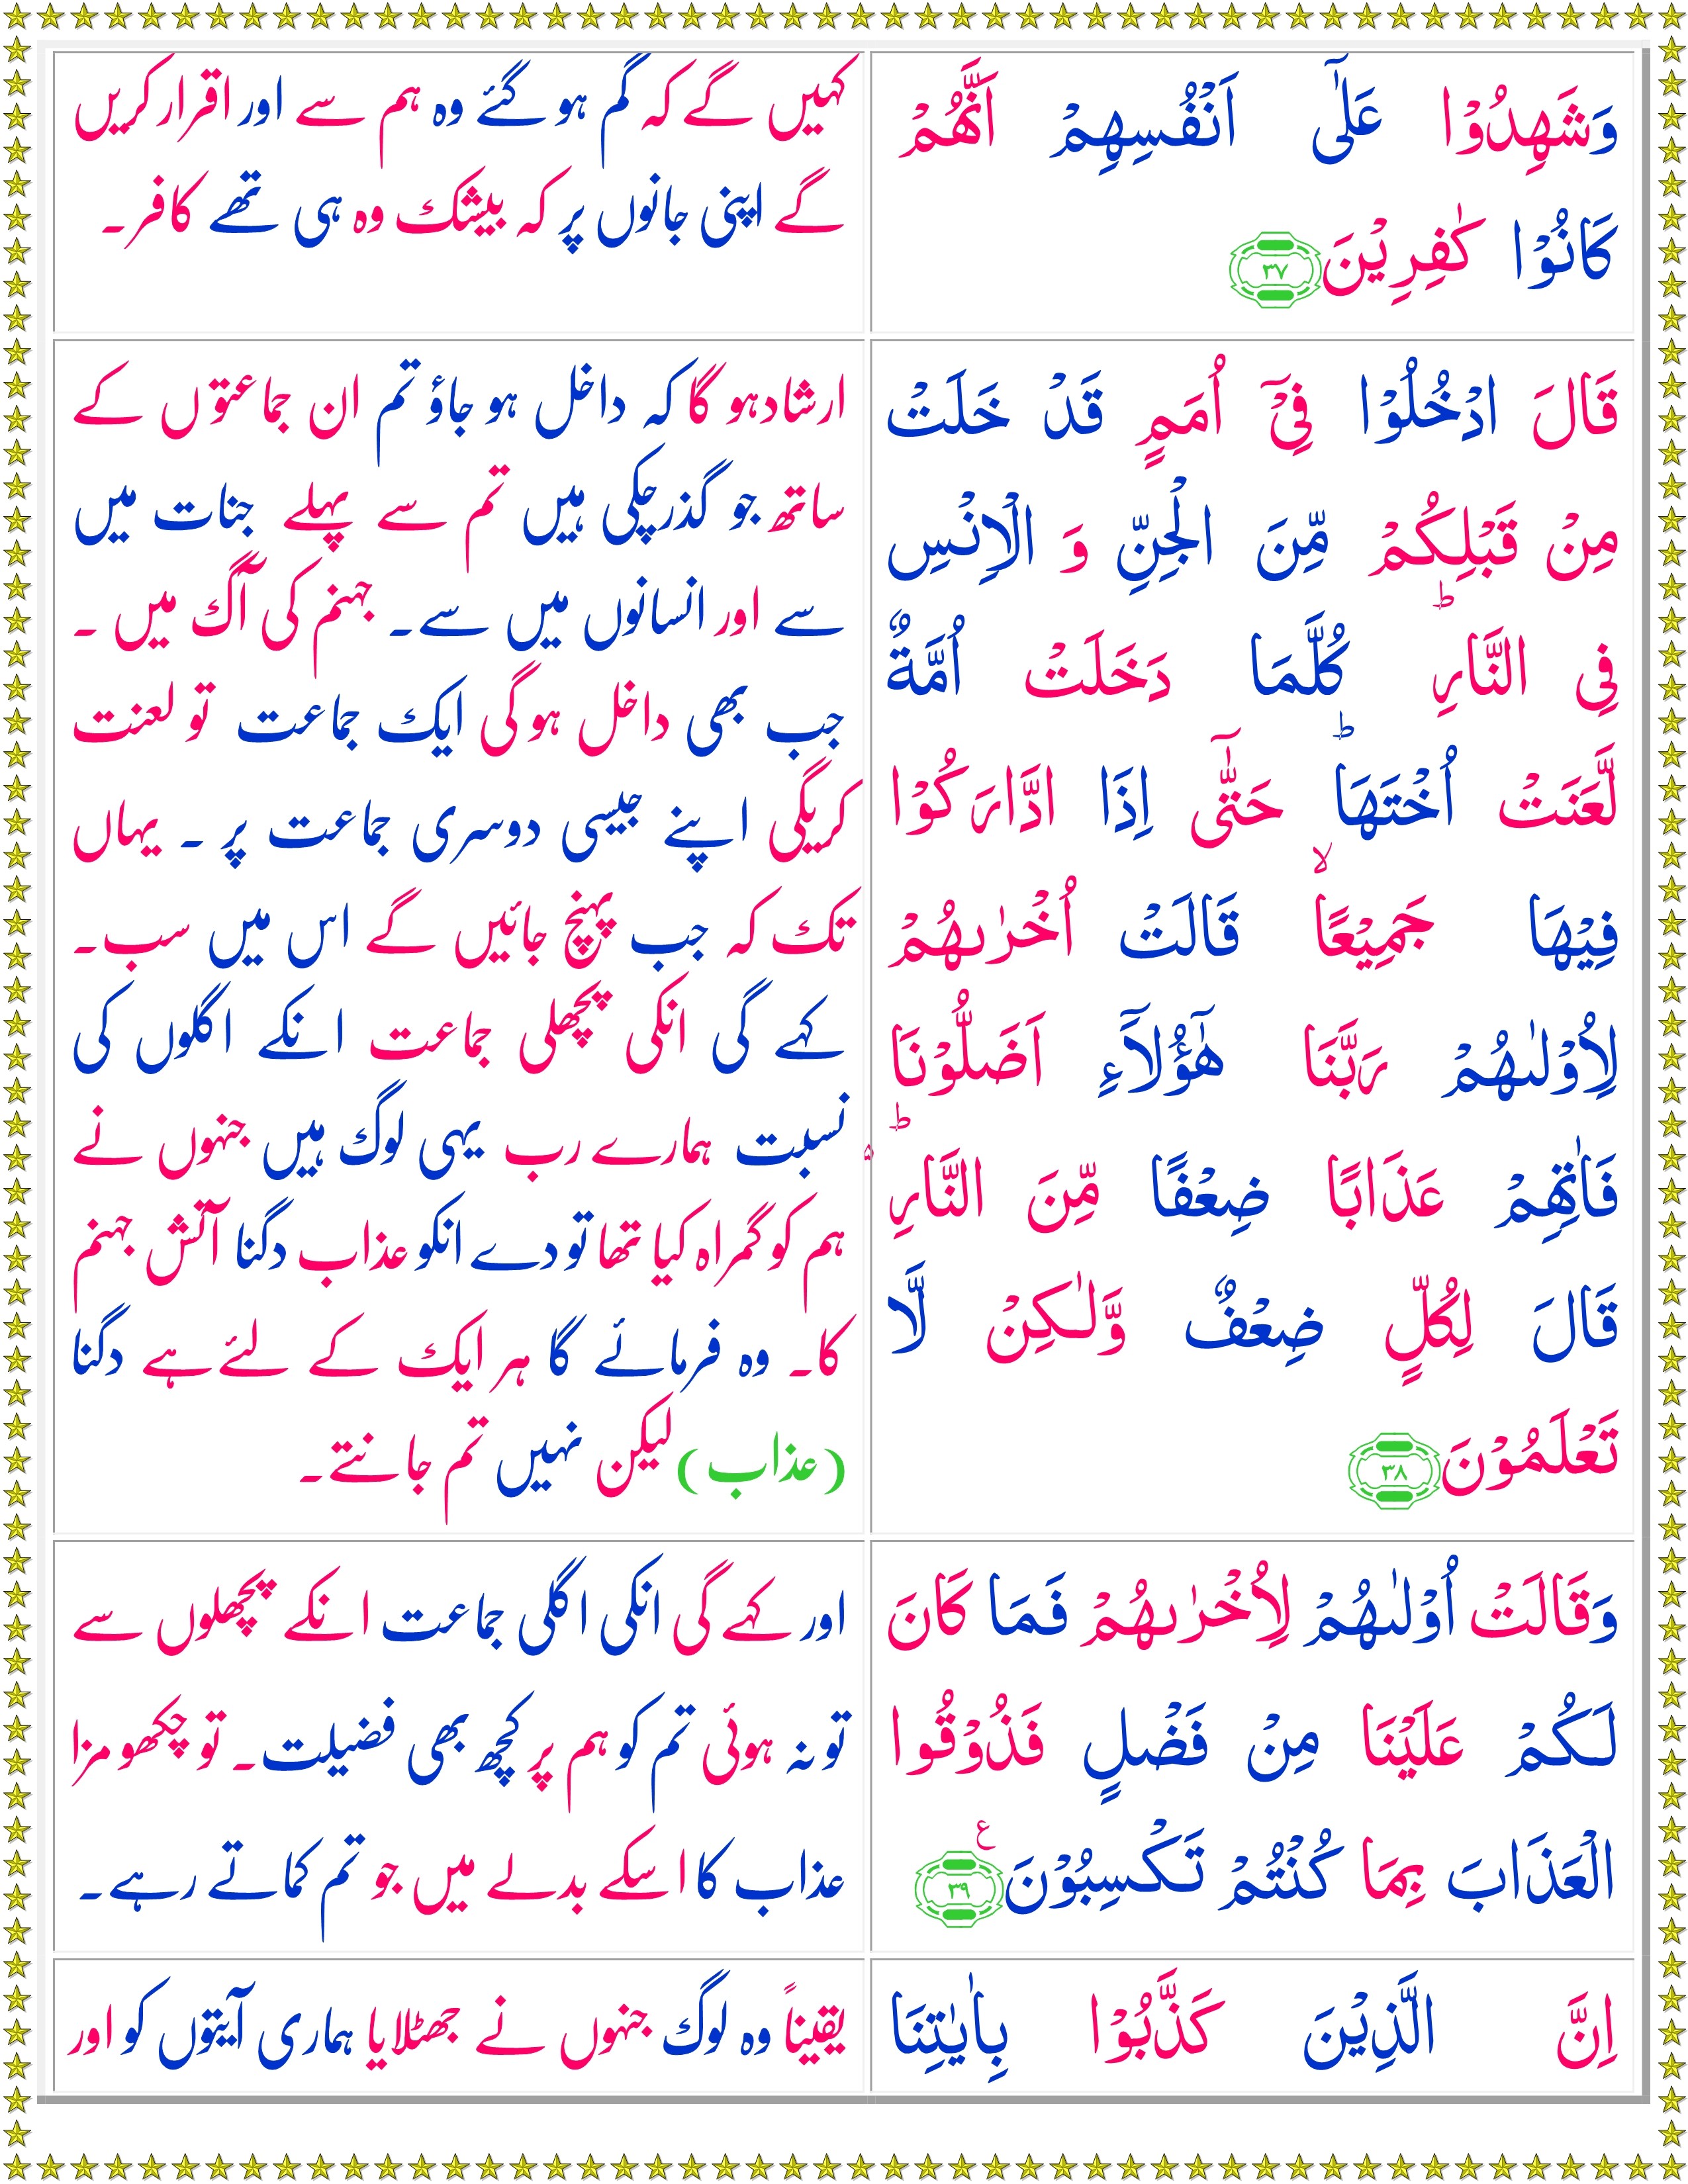 وَشَهِدُوْا عَلٰٓى اَنْفُسِهِمْ اَنَّهُمْ
كَانُوْا كٰفِرِيْنَ ۳۷
کہیں گے کہ گم ہو گئے وہ ہم سے اور اقرار کریں
گے اپنی جانوں پر کہ بیشک وہ ہی تھے کافر۔
قَالَ ادْخُلُوْا فِيْٓ اُمَمٍ قَدْ خَلَتْ
مِنْ قَبْلِكُمْ مِّنَ الْجِنِّ وَ الْاِنْسِ
فِي النَّارِ ؕ كُلَّمَا دَخَلَتْ اُمَّةٌ
لَّعَنَتْ اُخْتَهَا ؕ حَتّٰٓى اِذَا ادَّارَكُوْا
فِيْهَا جَمِيْعًا ۙ قَالَتْ اُخْرٰىهُمْ
لِاُوْلٰىهُمْ رَبَّنَا هٰٓؤُلَآءِ اَضَلُّوْنَا
فَاٰتِهِمْ عَذَابًا ضِعْفًا مِّنَ النَّارِ ؕ۵
قَالَ لِكُلٍّ ضِعْفٌ وَّلٰكِنْ لَّا
تَعْلَمُوْنَ ۳۸
ارشاد ہو گا کہ داخل ہو جاؤ تم ان جماعتوں کے
ساتھ جو گذرچکی ہیں تم سے پہلے جنات میں
سے اور انسانوں میں سے۔ جہنم کی آگ میں ۔
جب بھی داخل ہوگی ایک جماعت تو لعنت
کریگی اپنے جیسی دوسری جماعت پر ۔ یہاں
تک کہ جب پہنچ جائیں گے اس میں سب۔
کہے گی انکی پچھلی جماعت انکے اگلوں کی
نسبت ہمارے رب یہی لوگ ہیں جنہوں نے
ہم کو گمراہ کیا تھا تو دے انکو عذاب دگنا آتش جہنم
کا۔ وہ فرمائے گا ہر ایک کے لئے ہے دگنا
(عذاب) لیکن نہیں تم جانتے۔
وَقَالَتْ اُوْلٰىهُمْ لِاُخْرٰىهُمْ فَمَا كَانَ
لَكُمْ عَلَيْنَا مِنْ فَضْلٍ فَذُوْقُوا
الْعَذَابَ بِمَا كُنْتُمْ تَكْسِبُوْنَ ۳۹ ع
اور کہے گی انکی اگلی جماعت انکے پچھلوں سے
تو نہ ہوئی تم کو ہم پر کچھ بھی فضیلت۔ تو چکھو مزا
عذاب کا اسکے بدلے میں جو تم کماتے رہے۔
اِنَّ الَّذِيْنَ كَذَّبُوْا بِاٰيٰتِنَا
یقیناً وہ لوگ جنہوں نے جھٹلایا ہماری آیتوں کو اور